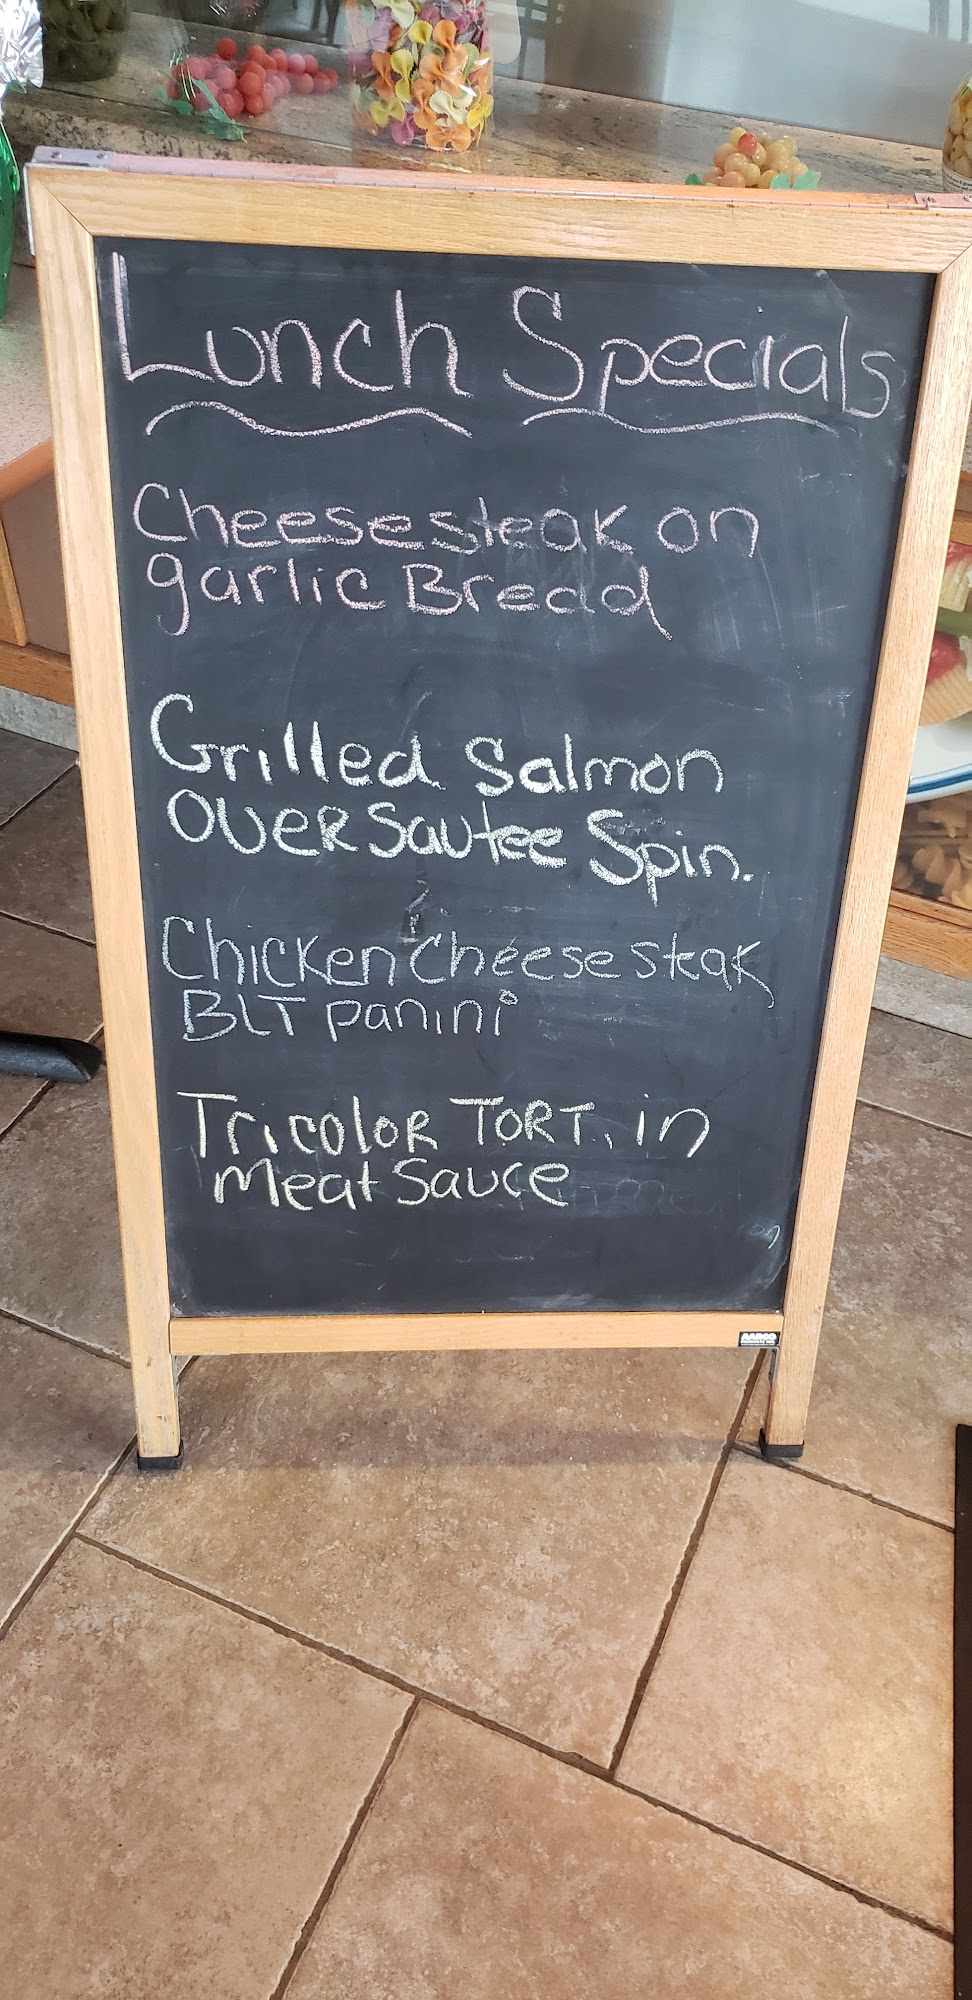 Lunch Specials
Cheesesteak on
garlic Bread
Grilled Salmon
over Sautee Spin.
Chicken Cheesesteak
BLT panini
Tricolor TORT. in
Meat Sauce
AARCO